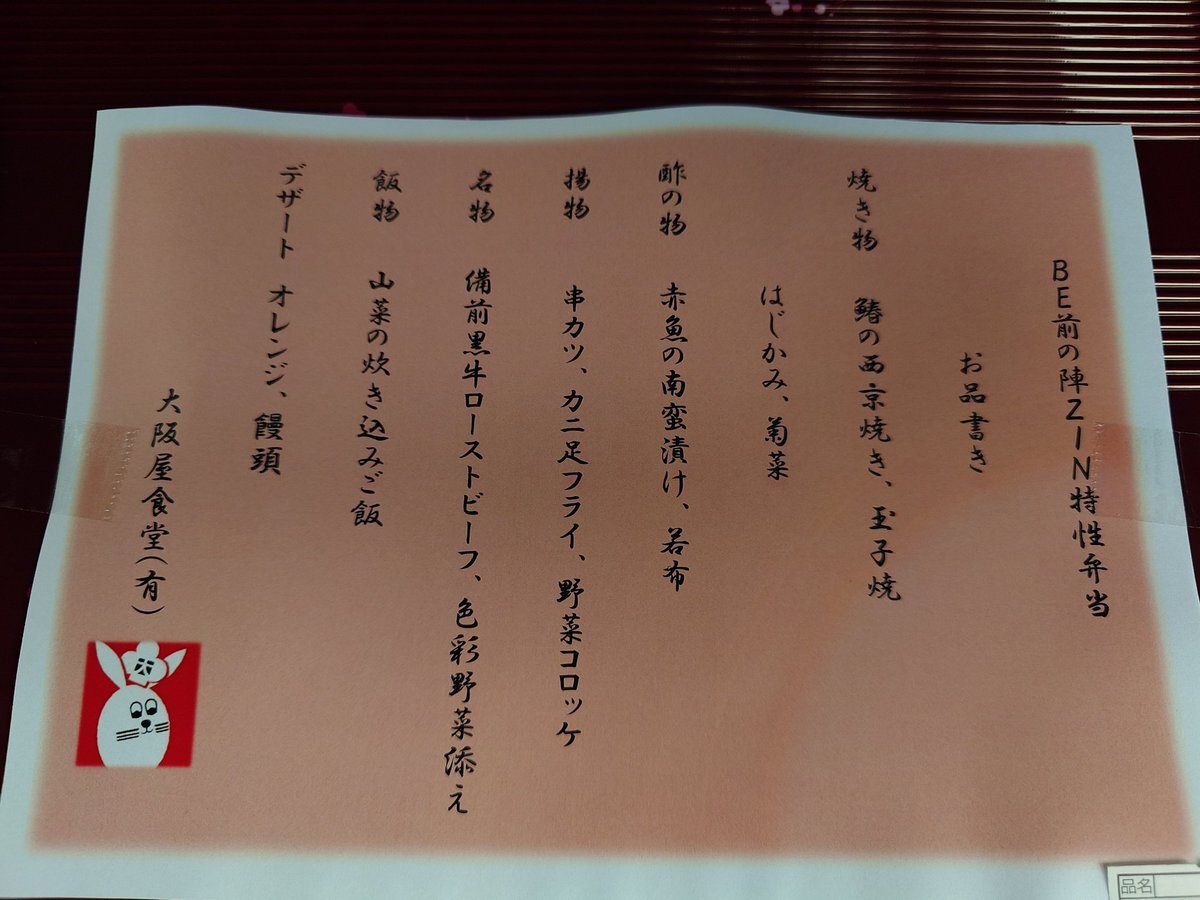 BE前の陣ZIN特性弁当
お品書き
焼き物 鰆の西京焼き、玉子焼
はじかみ、菊菜
酢の物 赤魚の南蛮漬け、若布
揚物 串カツ、カニ足フライ、野菜コロッケ
名物 備前黒牛ローストビーフ、色彩野菜添え
飯物 山菜の炊き込みご飯
デザート オレンジ、饅頭
大阪屋食堂(有)
品名